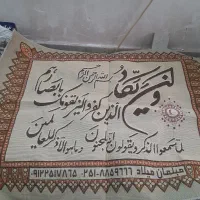 بسم الله الرحمن الرحیم
و إن یکاد
الذین کفروا لیزلقونک بابصارهم
لما سمعوا الذکر و یقولون إنه لمجنون و ما هو الا ذکر للعالمین
میلاد ۰۲۵۱-۸۸۵۹۶۶۶ ۰۹۱۲۲۵۱۷۸۶۵